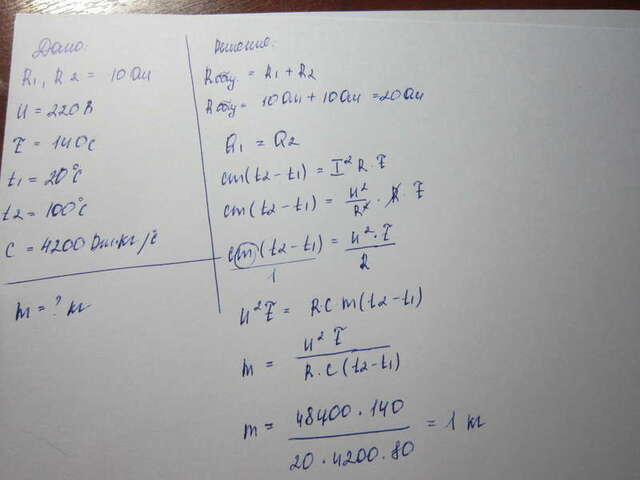 Дано:
R1, R2 = 10 Ом
U = 220 В
τ = 140 с
t1 = 20°C
t2 = 100°C
C = 4200 Дж·кг/°C
m = ? кг
Решение:
Rобщ = R1 + R2
Rобщ = 10 Ом + 10 Ом = 20 Ом
Q1 = Q2
cm(t2 - t1) = I² R · τ
cm(t2 - t1) = U²/R² · R · τ
cm(t2 - t1)/1 = U² · τ/R
U² τ = R C m (t2 - t1)
m = U² τ / R · C (t2 - t1)
m = 48400 · 140 / 20 · 4200 · 80 = 1 кг